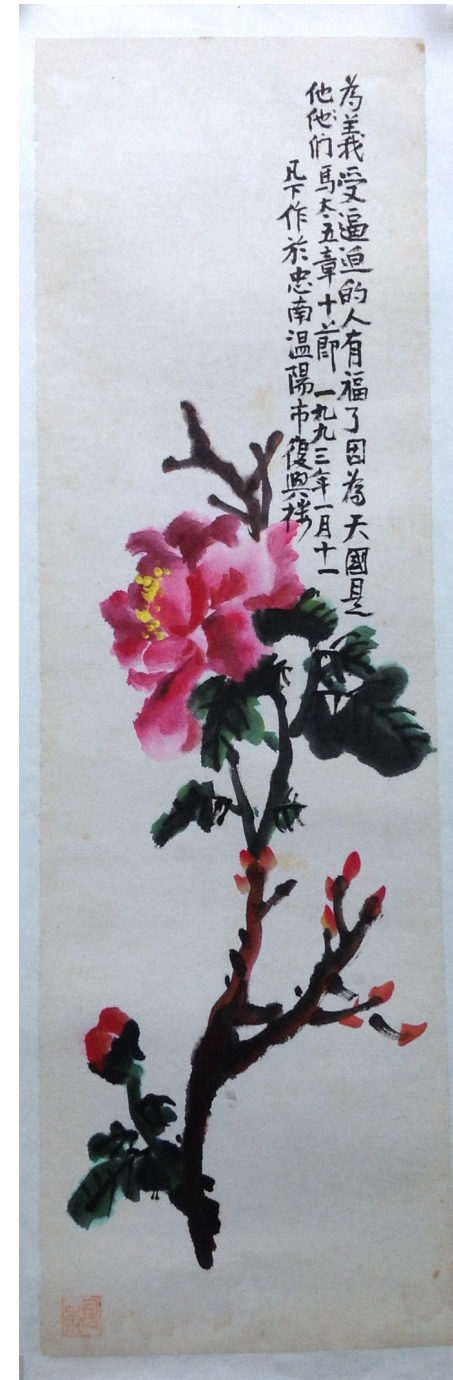 為義受逼迫的人有福了因為天國是
他他们馬太五章十節 一九九三年一月十一
凡下作於忠南温陽市復興楼